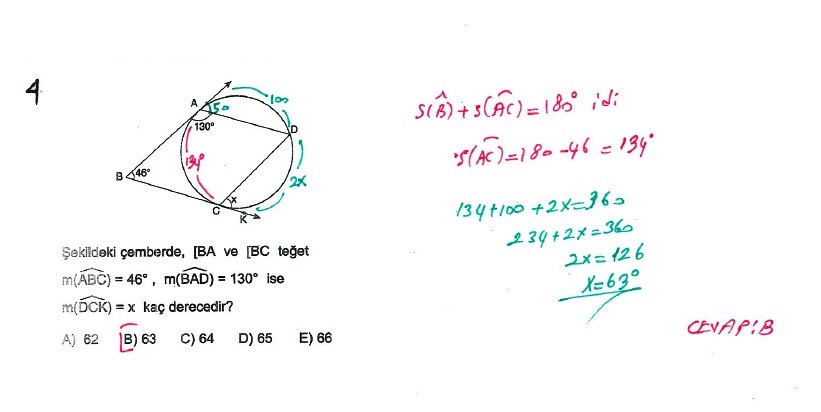 4
A
50
100
130°
D
134°
B
46°
2x
x
C
K
S(B̂)+S(A͡C)=180° idi
S(A͡C)=180-46=134°
134+100+2x=360
234+2x=360
2x=126
x=63°
Şekildeki çemberde, [BA ve [BC teğet
m(ABC) = 46° , m(BAD) = 130° ise
m(DCK) = x kaç derecedir?
A) 62 B) 63 C) 64 D) 65 E) 66
CEVAP:B